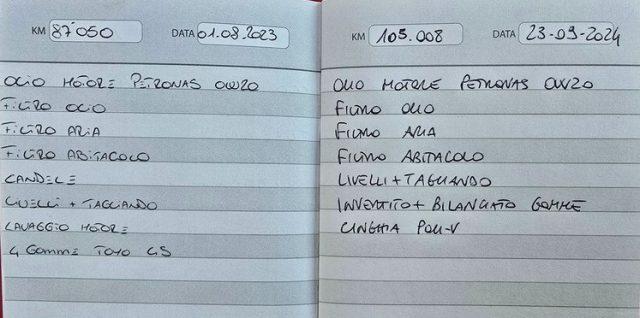 KM 87'050 DATA 01.08.2023
OLIO MOTORE PETRONAS 0W20
FILTRO OLIO
FILTRO ARIA
FILTRO ABITACOLO
CANDELE
LIVELLI + TAGLIANDO
LAVAGGIO MOTORE
4 GOMME TOYO CS
KM 105.008 DATA 23-09-2024
OLIO MOTORE PETRONAS 0W20
FILTRO OLIO
FILTRO ARIA
FILTRO ABITACOLO
LIVELLI + TAGLIANDO
INVERTITO + BILANCIATO GOMME
CINGHIA POLI-V